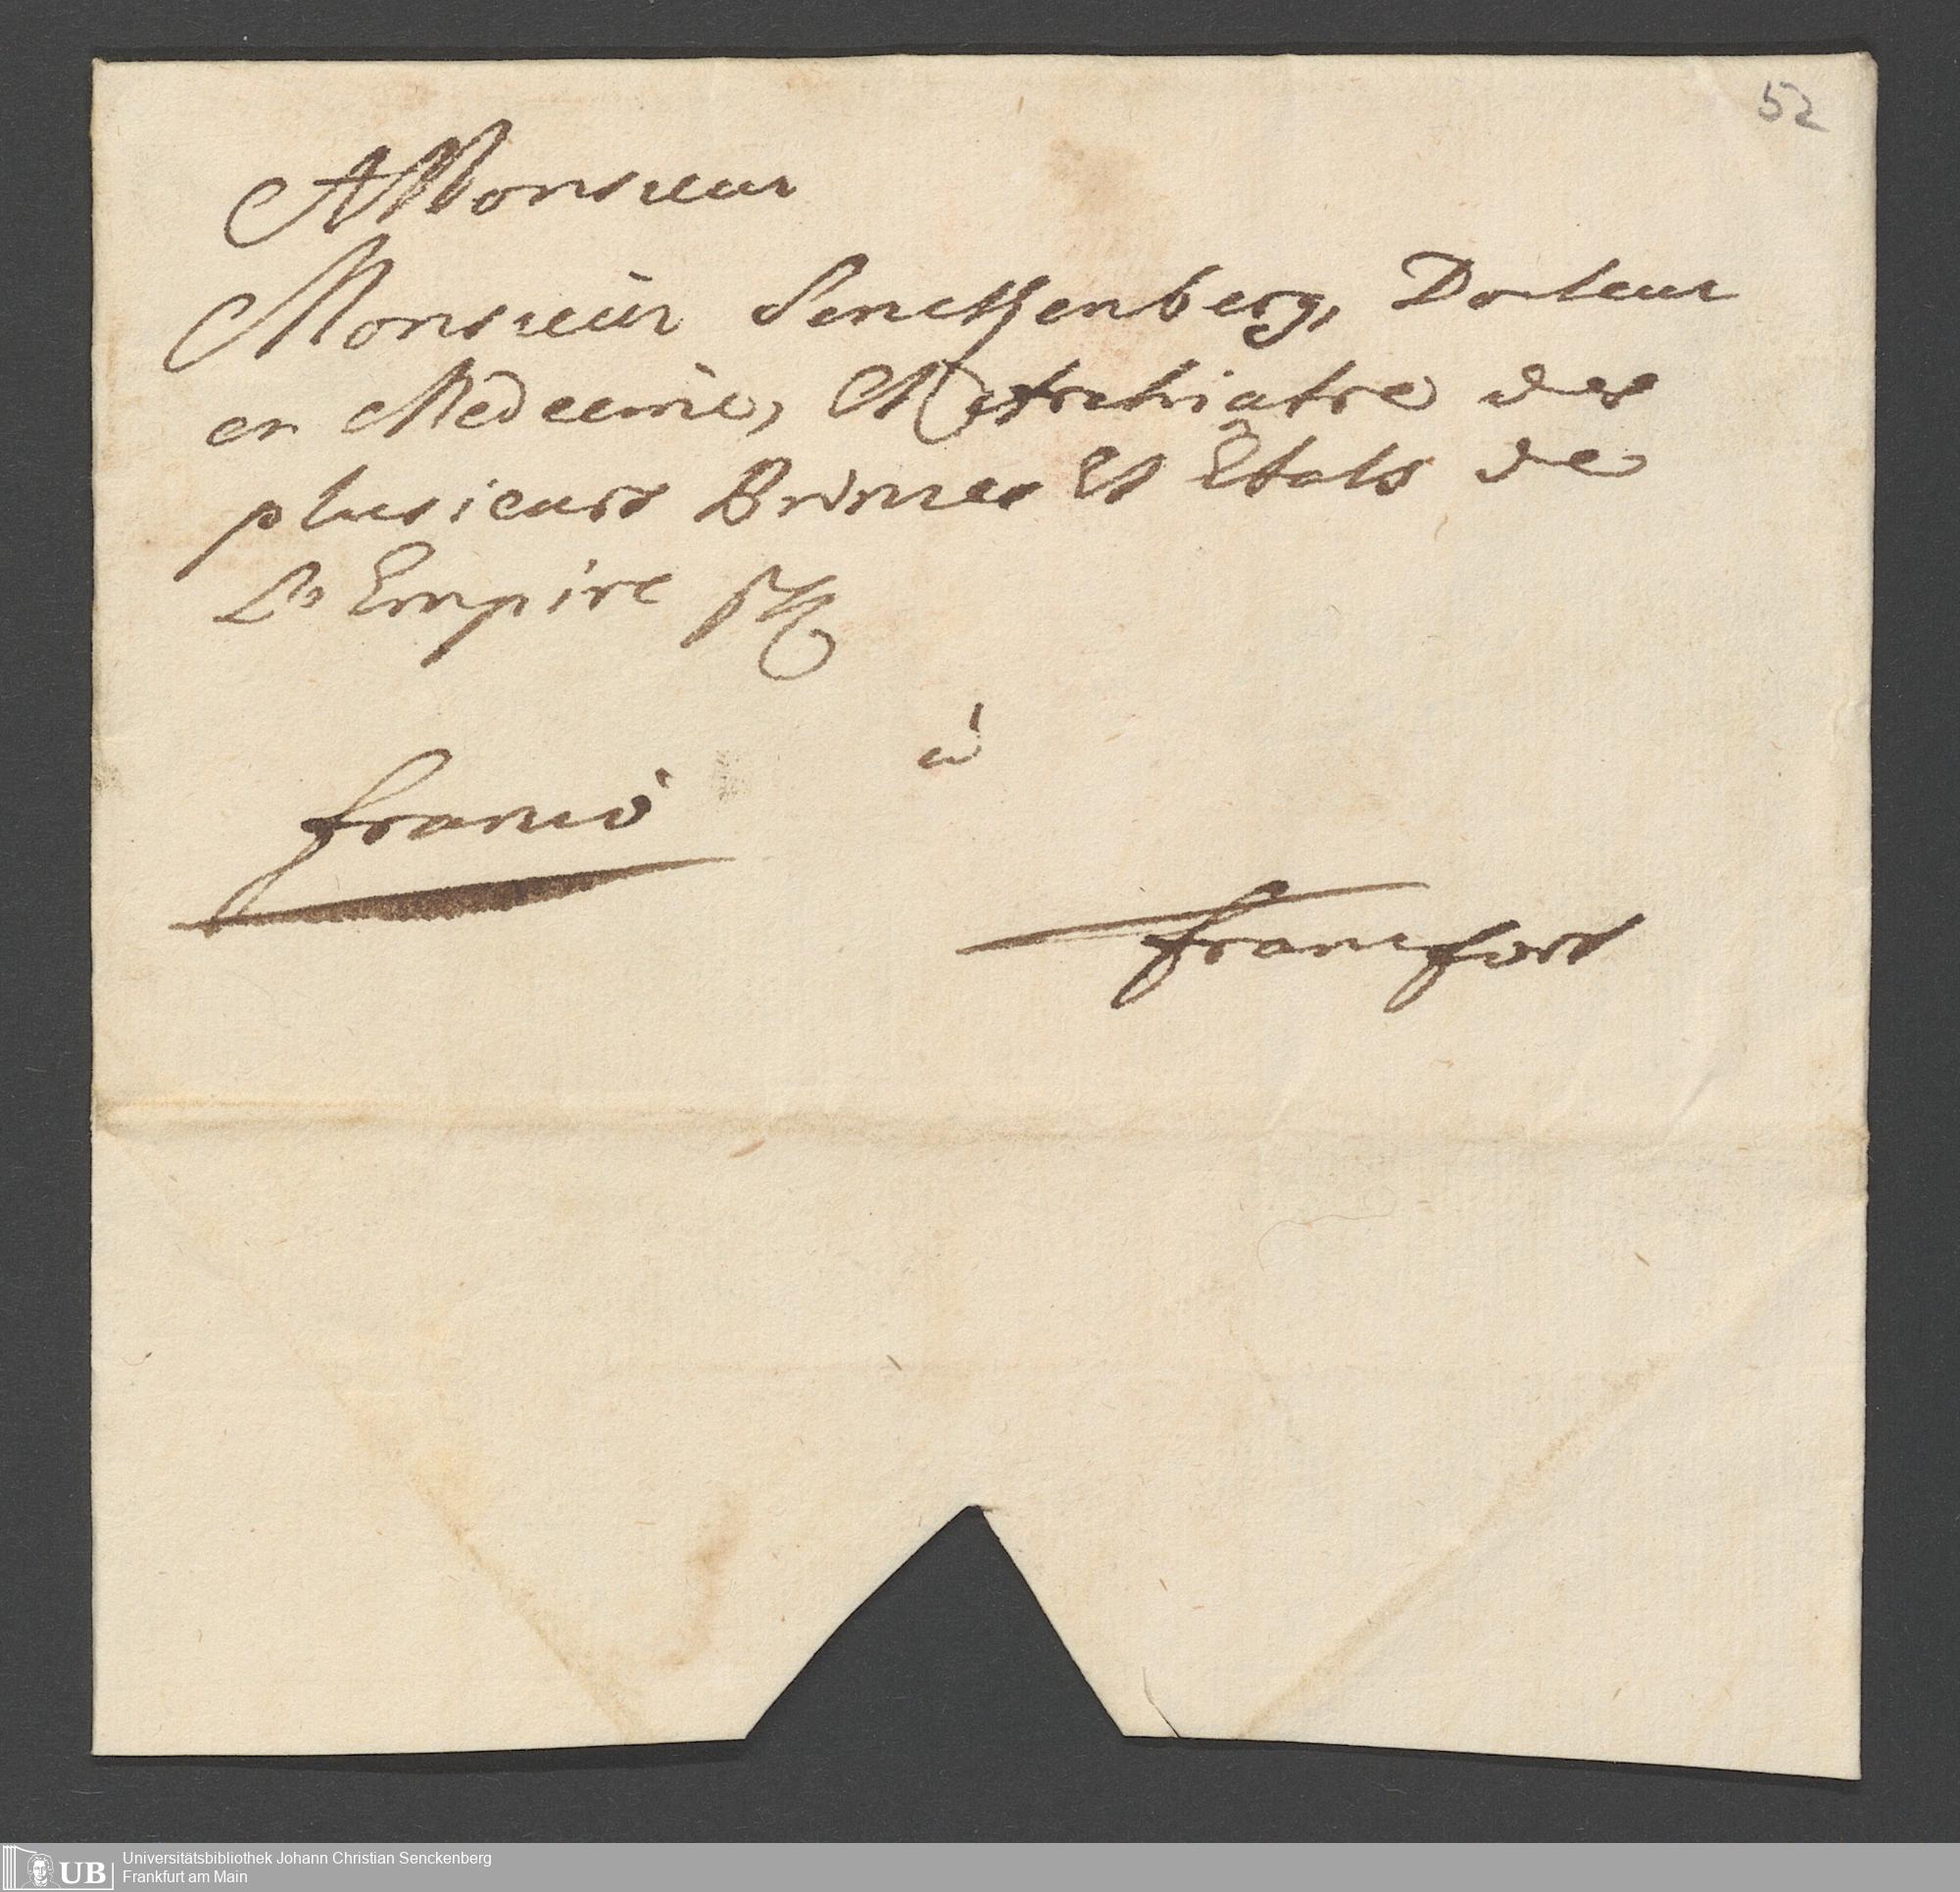 52
A Monsieur
Monsieur Senckenberg, Docteur
en Medecine, Archiatre des
plusieurs Princes et Etats de
L'Empire
à
franco
francfort
UB
Universitätsbibliothek Johann Christian Senckenberg
Frankfurt am Main